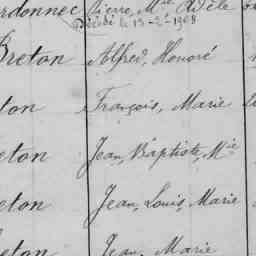 rdonnec Pierre, Mie Adèle
Décédé le 13-2-1908
Breton Alfred, Honoré
ton François, Marie
eton Jean, Baptiste, Mie
eton Jean, Louis, Marie
eton Jean, Marie